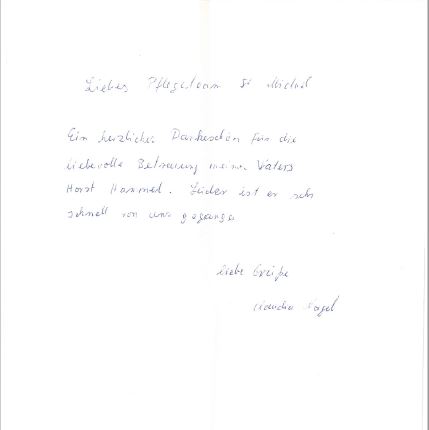 Liebes Pflegeteam St Michael
Ein herzliches Dankeschön für die
liebevolle Betreuung meines Vaters
Horst Hammed. Leider ist er sehr
schnell von uns gegangen
Liebe Grüße
Claudia Nagel